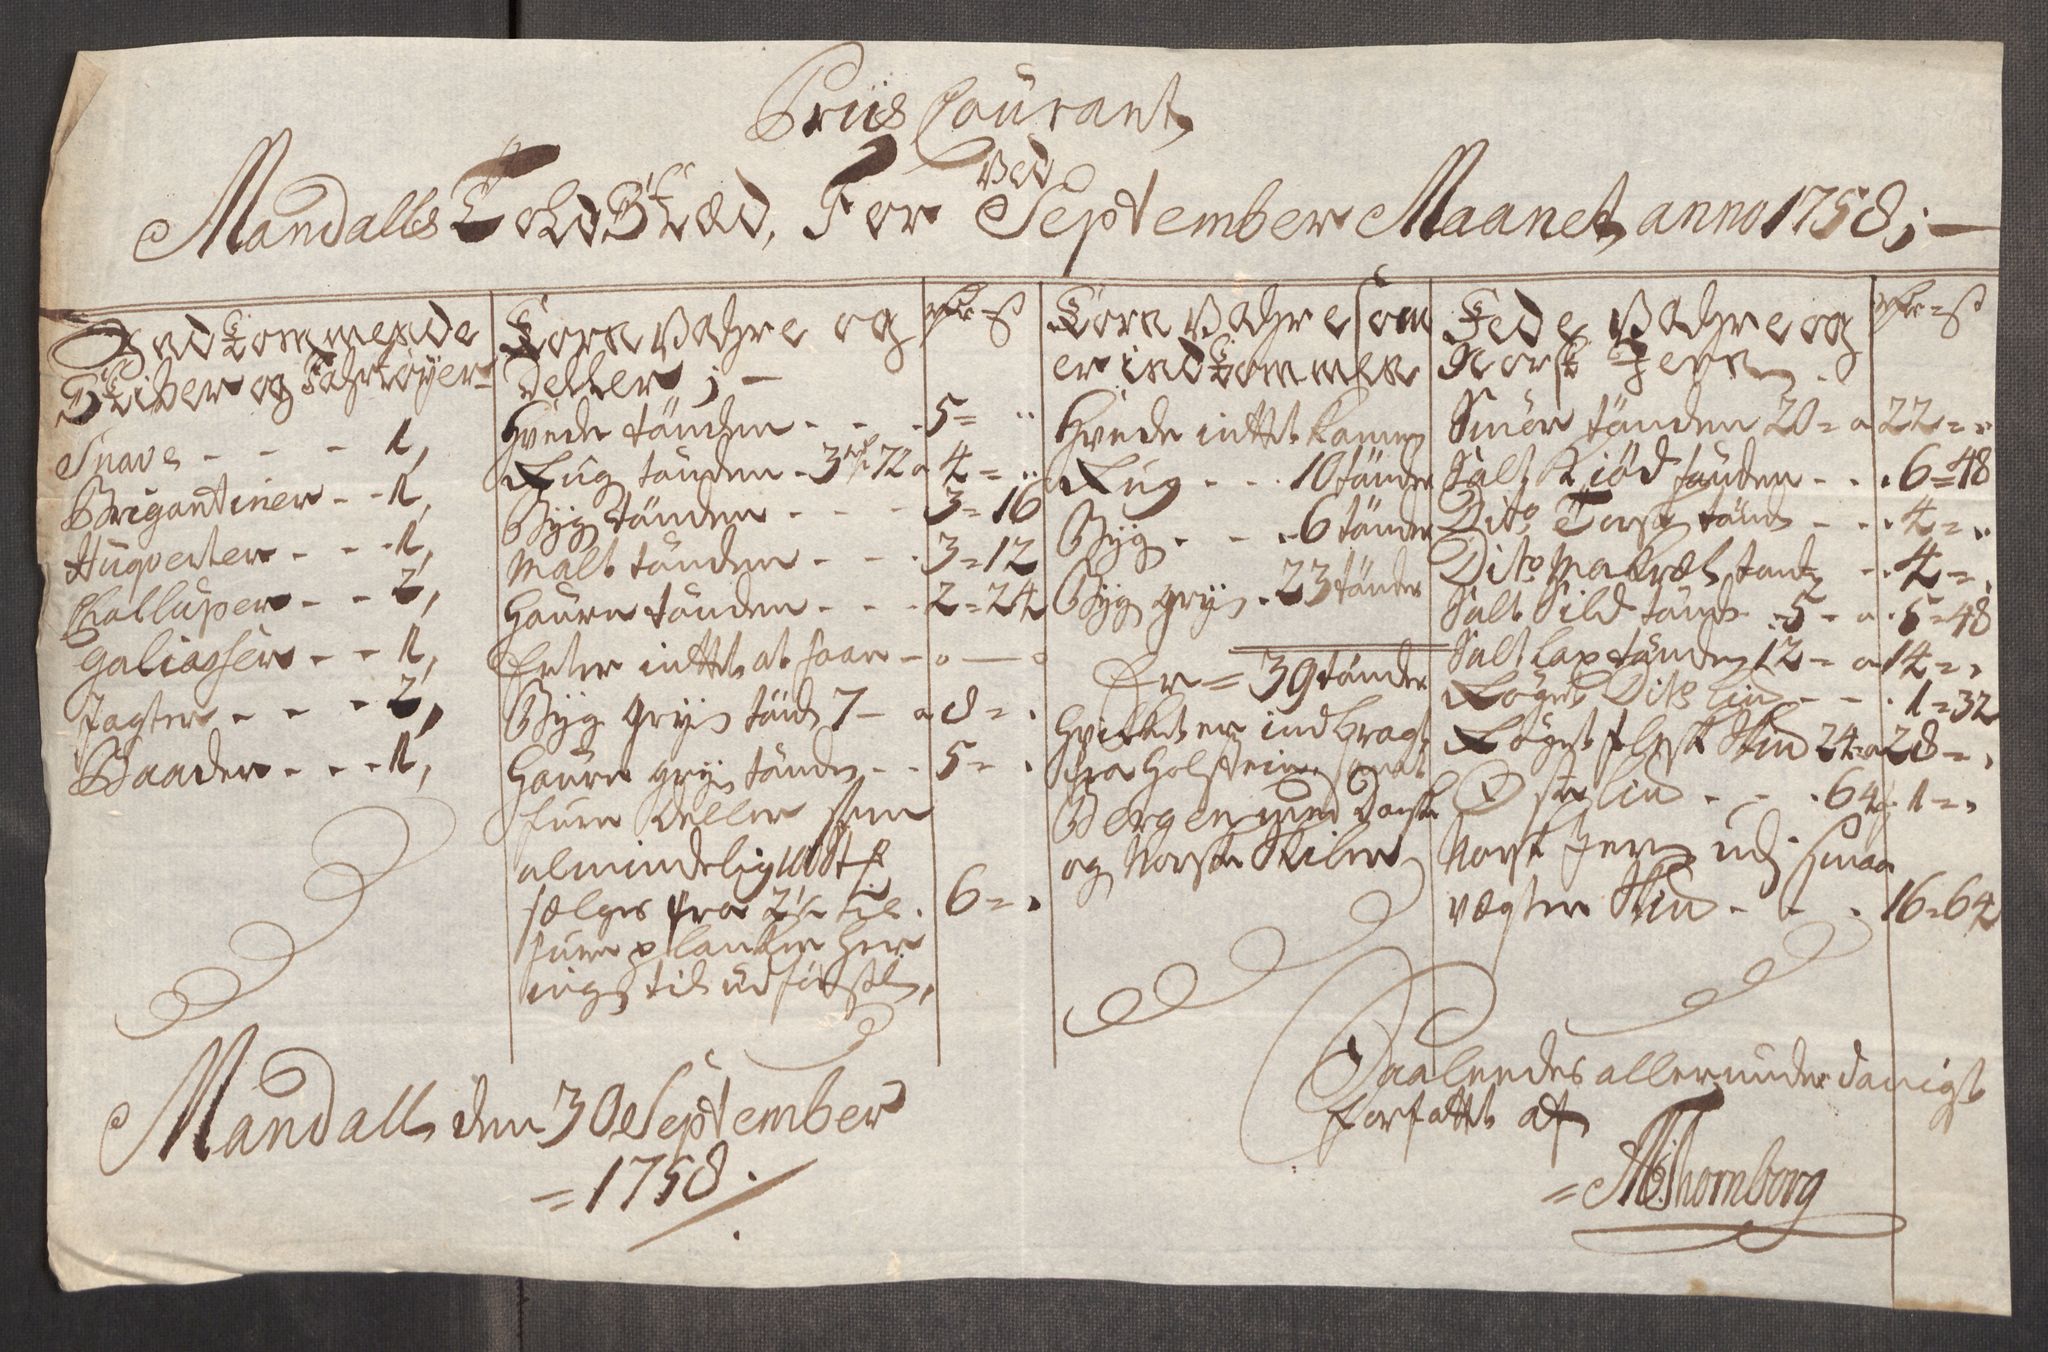 Priis Courant
ved
Mandalls Told Stæd, For September Maanet anno 1758;
Indkommende
Skiber og Fahrtøyer
Snave - - - 1,
Brigantiner - - 1,
Huqverter - - - 1,
Challuper - - 2,
Galiasser - - 1,
Jagter - - - 2,
Baader - - - 1,
Korn Vahre og
Deller ; rdr = ß
Hvede tønden - - - 5 = "
Rug tønden - 3 rdr 72 a 4 = "
Byg tønden - - - 3 = 16
Malt tønden - - - 3 = 12
Haure tønden - - - 2 = 24
Erter inttet at faae - 0 — 0
Byg gryn tønd 7 - a 8 = "
Haure gryn tønden - - 5 = "
Furu Deller som
almindelig 100 st
sælges fra 2 1/2 til 6 = "
furu planker her
ingen til udførsel,
Korn Vahre som
er indkommen
Hvede inttet kommen
Rug - - - 10 tønder
Byg - - - 6 tønder
Byg gryn - 23 tønder
Er = 39 tønder
Hvilket er indbragt
fra Holsteen samt
Bergen med Danske
og Norske Skiber
Fede Vahre og
Norsk Jern rdr = ß
Smør tønden 20 = a 22 = "
Salt Kiød tønden - - - 6 = 48
Dito Torsk tønd - - - 4 = "
Dito Makrel tønd - - 4 = "
Salt Sild tønd - 5 - a 5 = 48
Salt Lax tønden 12 - a 14 = "
Røget Dito Lius - - - 1 = 32
Røget Flesk Skd 24 = a 28 = "
Ost Lius - - - 64 ß 1 = "
Norsk Jern udj smaa
vægter Skd - - - 16 = 64
Mandall den 30 September
= 1758.
Saaleedes allerunderdanigst
forfattet af
= Thornborg